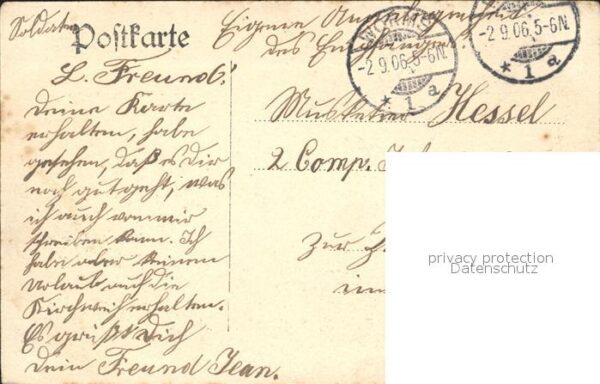 Soldaten
Postkarte
Eigene Angelegenheit
des Empfängers
-2.9.06.5-6N.
* 1 a
-2.9.06.5-6N.
* 1 a
L. Freund!
Deine Karte
erhalten, habe
gesehen, daß es Dir
noch gut geht, was
ich auch von mir
schreiben kann. Ich
habe aber keinen
Urlaub auf die
Kirchweih erhalten.
Es grüßt Dich
Dein Freund Jean.
Musketier Hessel
2 Comp.
Zur
privacy protection
Datenschutz